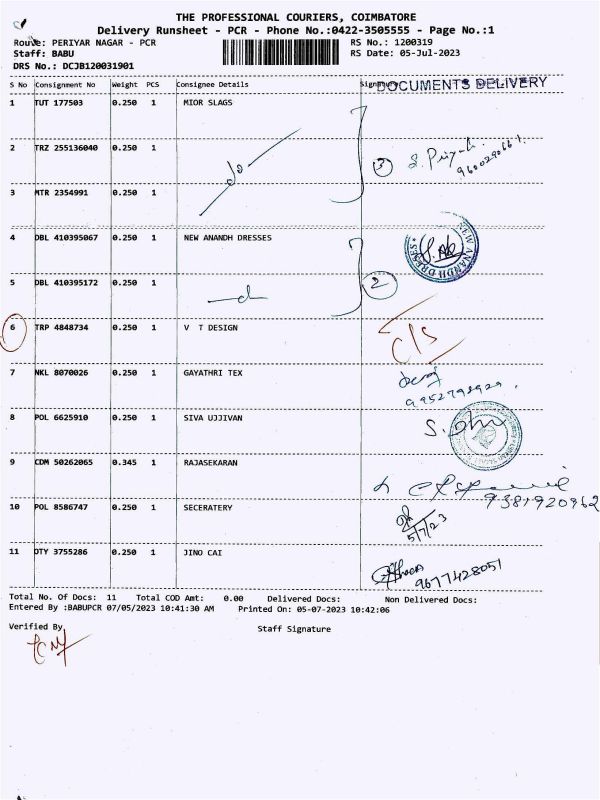 THE PROFESSIONAL COURIERS, COIMBATORE
Delivery Runsheet - PCR - Phone No.:0422-3505555 - Page No.:1
Route: PERIYAR NAGAR - PCR RS No.: 1200319
Staff: BABU RS Date: 05-Jul-2023
DRS No.: DCJB120031901
S No Consignment No Weight PCS Consignee Details Signature DOCUMENTS DELIVERY
1 TUT 177503 0.250 1 MIOR SLAGS
2 TRZ 255136040 0.250 1 do 3 S. Priya
3 MTR 2354991 0.250 1
4 DBL 410395067 0.250 1 NEW ANANDH DRESSES NEW ANANDH DRESES
5 DBL 410395172 0.250 1 2
6 TRP 4848734 0.250 1 V T DESIGN C/S
7 NKL 8070026 0.250 1 GAYATHRI TEX
8 POL 6625910 0.250 1 SIVA UJJIVAN
9 CDM 50262065 0.345 1 RAJASEKARAN 9381920962
10 POL 8586747 0.250 1 SECERATERY 5/7/23
11 OTY 3755286 0.250 1 JINO CAI 9677428051
Total No. Of Docs: 11 Total COD Amt: 0.00 Delivered Docs: Non Delivered Docs:
Entered By :BABUPCR 07/05/2023 10:41:30 AM Printed On: 05-07-2023 10:42:06
Verified By Staff Signature